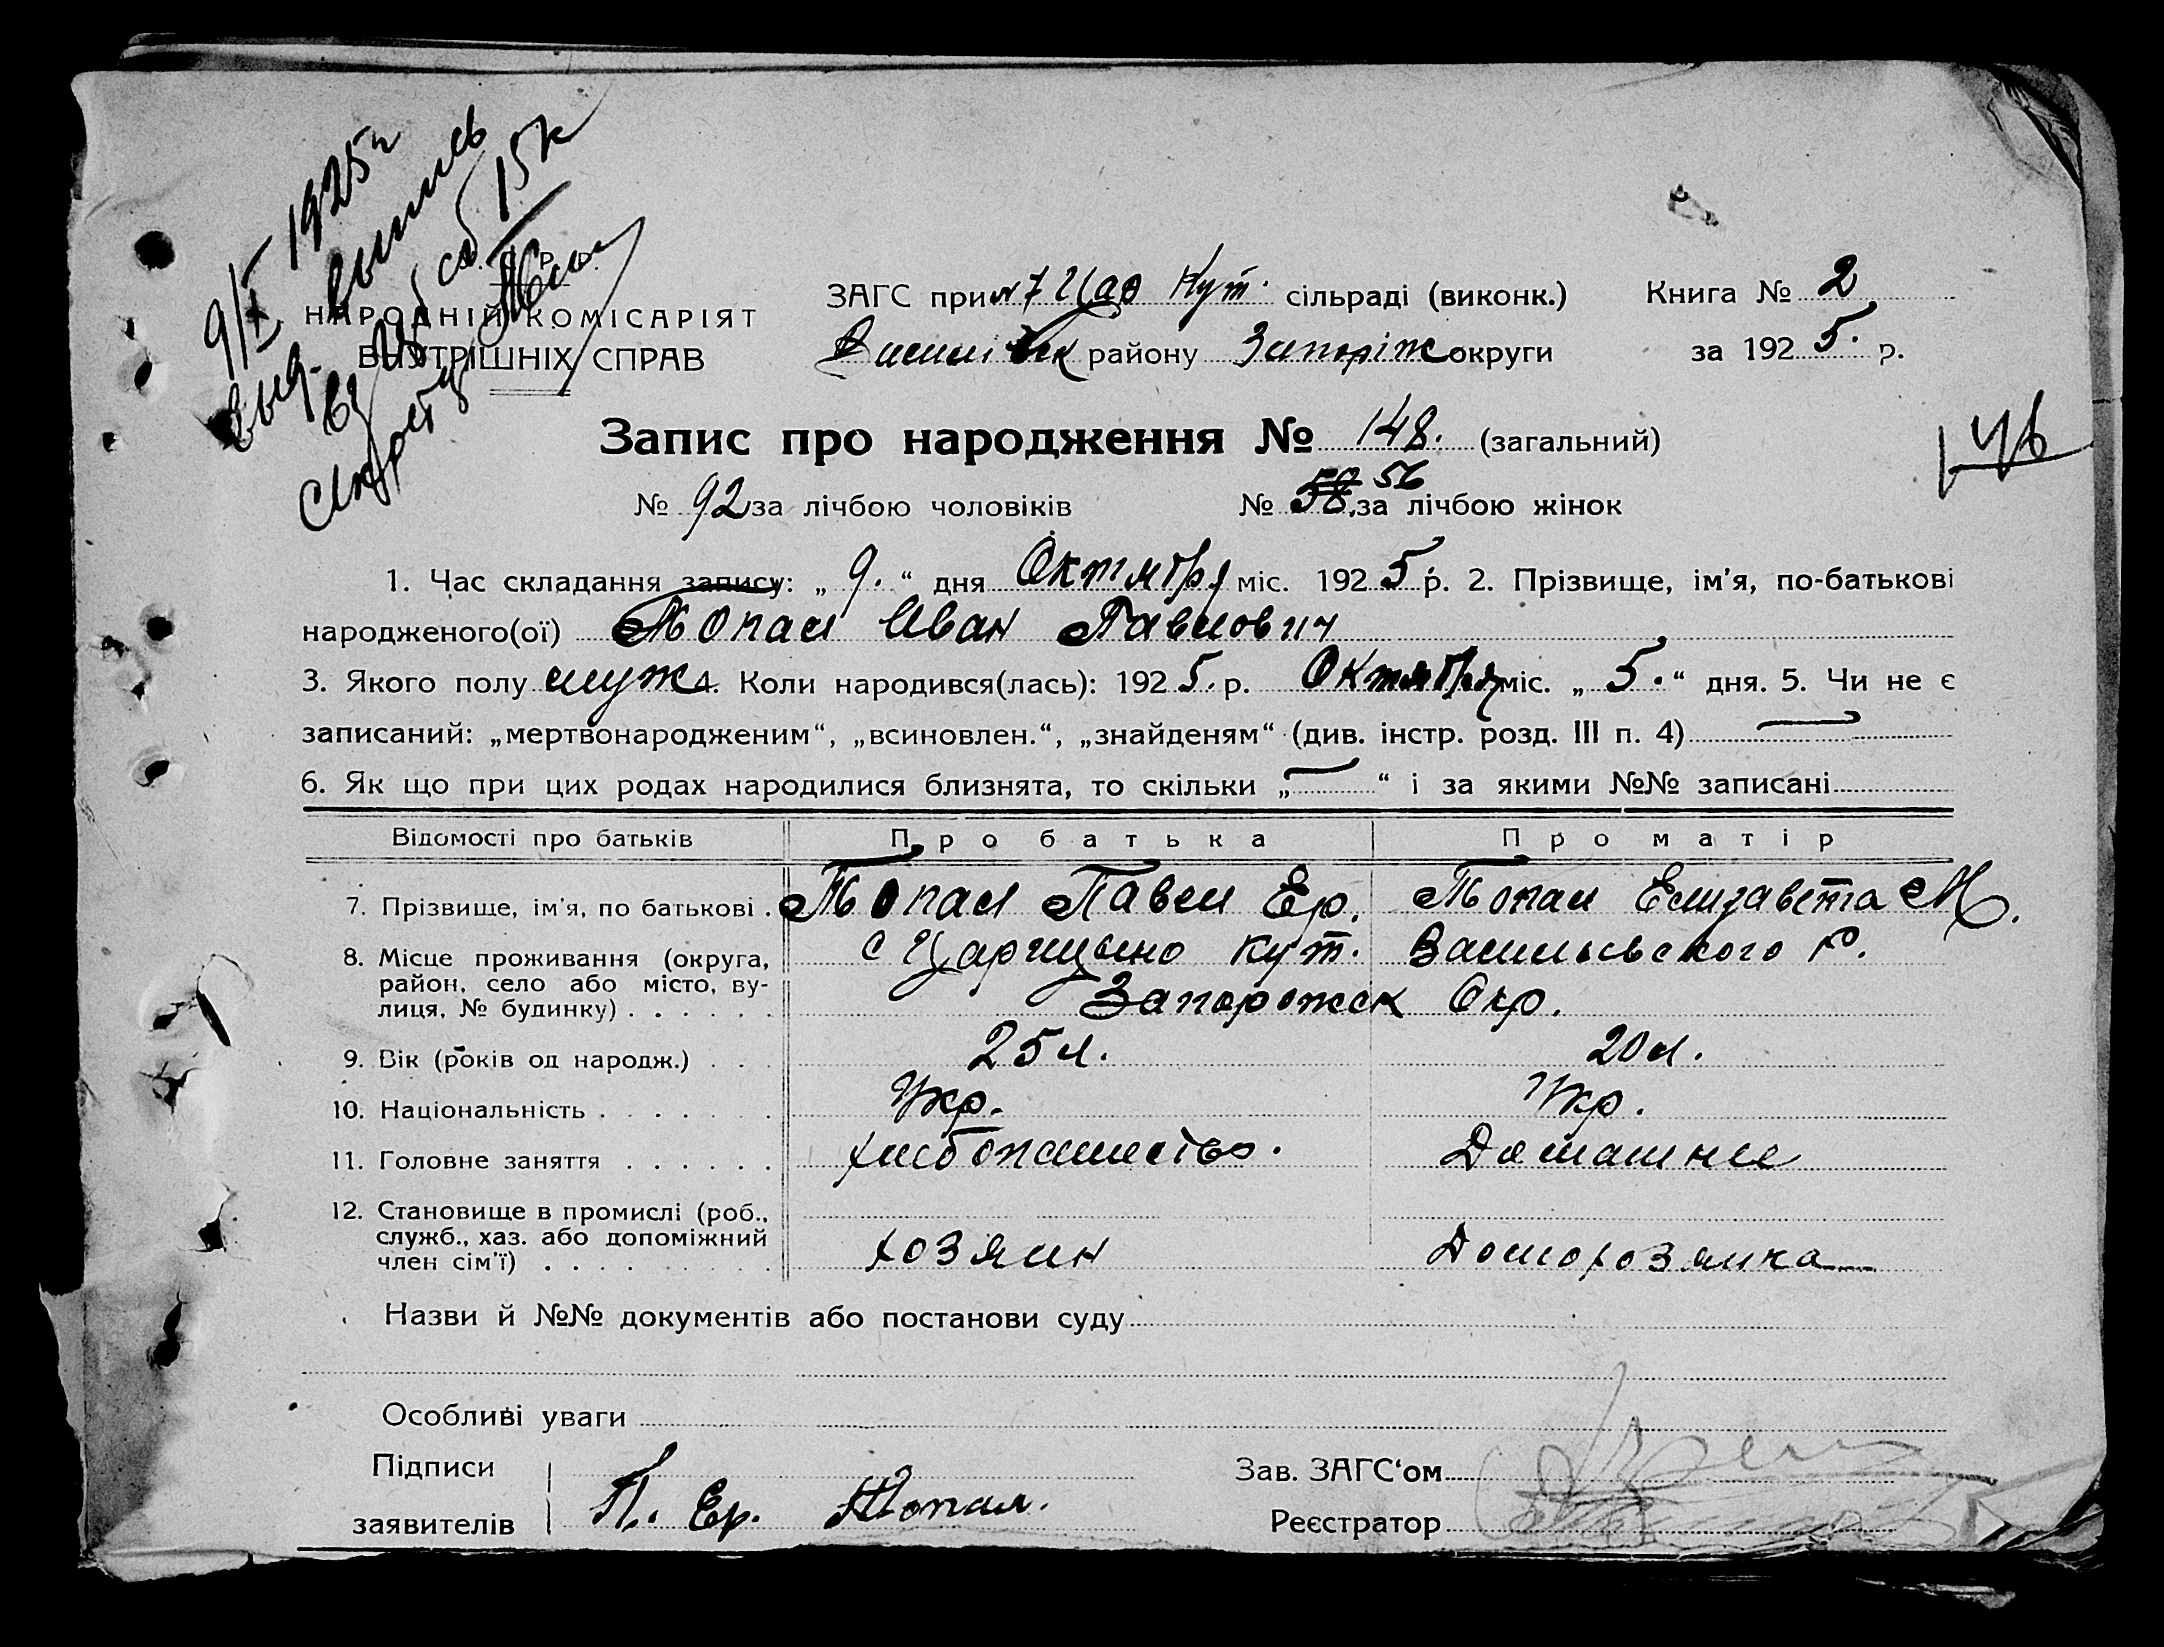 9/X 1925 г
выпись
15 к
У. С. Р. Р.
НАРОДНІЙ КОМІСАРІЯТ
ВНУТРІШНІХ СПРАВ
ЗАГС при Цар Кут. сільраді (виконк.)
Книга № 2
Василівськ району Запоріж округи
за 192 5. р.
Запис про народження № 148. (загальний)
146
№ 92 за лічбою чоловіків № 58 56 за лічбою жінок
1. Час складання запису: „ 9. “ дня Октября міс. 192 5 р. 2. Прізвище, ім’я, по-батькові
народженого(ої) Топал Иван Павлович
3. Якого полу муж 4. Коли народився(лась): 192 5. р. Октября міс. „ 5. “ дня. 5. Чи не є
записаний: „мертвонародженим“, „всиновлен.“, „знайденям“ (див. інстр. розд. III п. 4) —
6. Як що при цих родах народилися близнята, то скільки „ — “ і за якими №№ записані
Відомості про батьків Про батька Про матір
7. Прізвище, ім’я, по батькові . Топал Павел Ер. Топал Елизавета М.
8. Місце проживання (округа, с Царицыно Кут. Васильевского Р.
район, село або місто, ву- Запорожск Окр.
лиця, № будинку) . . . . . .
9. Вік (років од народж.) . . . 25 л. 20 л.
10. Національність . . . . . . . Укр. Укр.
11. Головне заняття . . . . . . хлебопашество. Домашнее
12. Становище в промислі (роб.,
служб., хаз. або допоміжний хозяин Домохозяика
член сім’ї) . . . . . . . . .
Назви й №№ документів або постанови суду
Особливі уваги
Підписи
Зав. ЗАГС‘ом
заявителів П. Ер. Топал.
Реєстратор